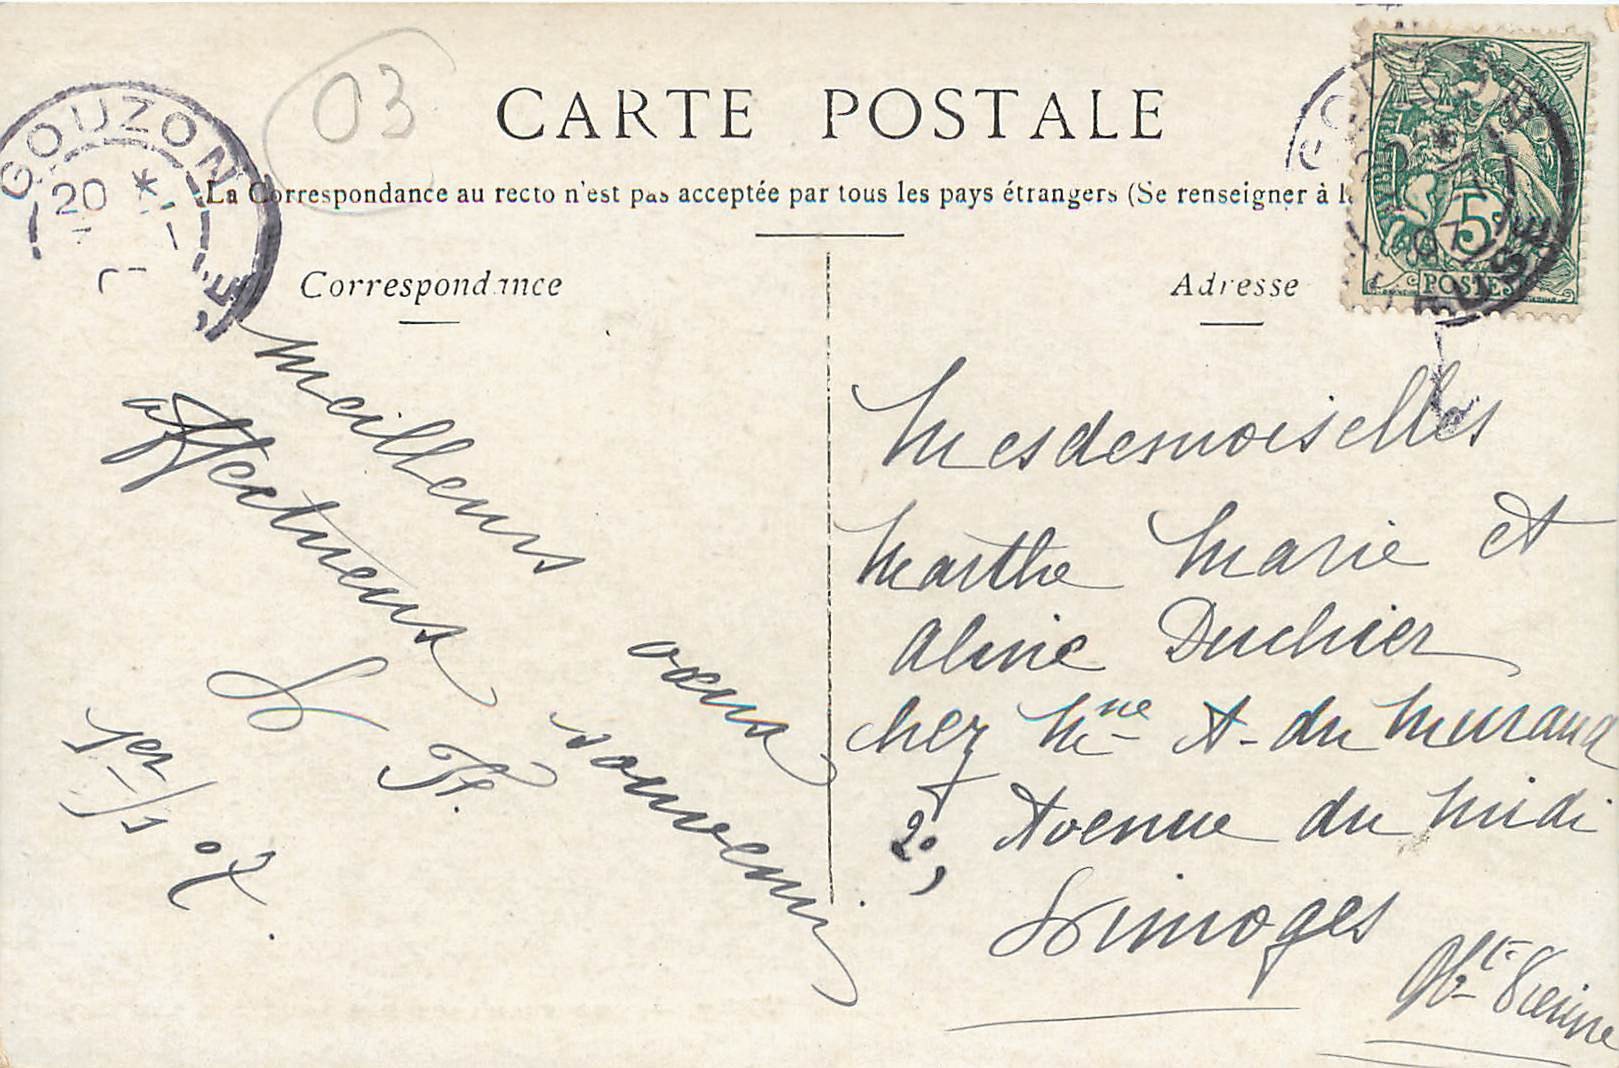 CARTE POSTALE
03
GOUZON
20
La Correspondance au recto n'est pas acceptée par tous les pays étrangers (Se renseigner à l
Correspondance
Meilleurs vœux
affectueux souvenir
L F.
1er/1 07.
Adresse
5
POSTES
07
Mesdemoiselles
Marthe Marie et
Aline Duchier
chez Mme A. du Muraud
2, Avenue du Midi
Limoges
Hte Vienne